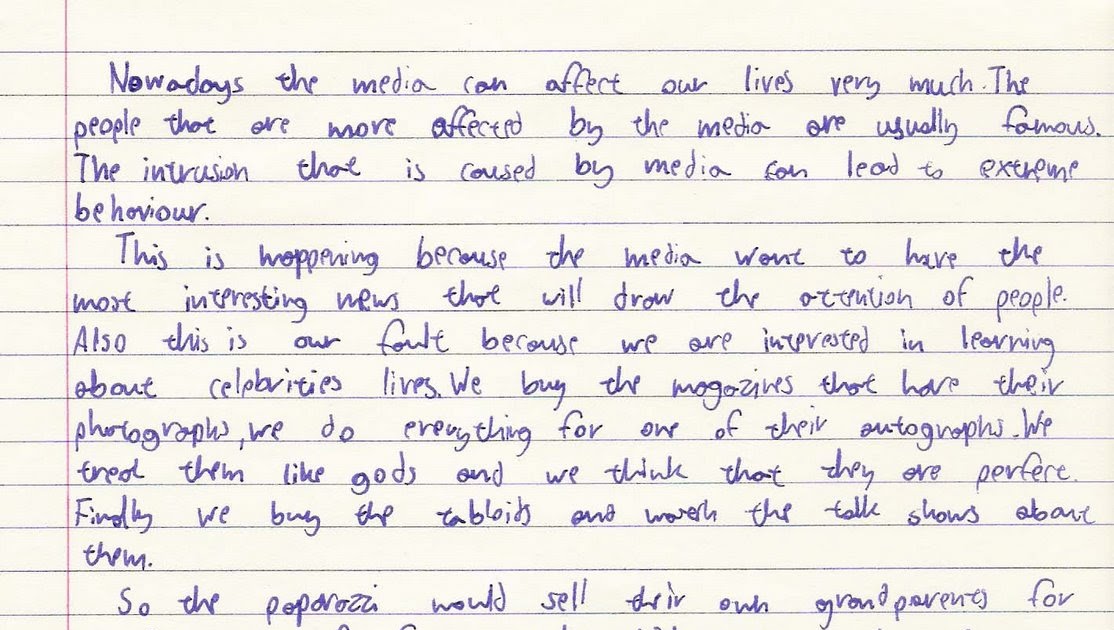 Nowadays the media can affect our lives very much. The
people that are more affected by the media are usually famous.
The intrusion that is caused by media can lead to extreme
behaviour.
This is happening because the media want to have the
most interesting news that will draw the attention of people.
Also this is our fault because we are interested in learning
about celebrities lives. We buy the magazines that have their
photographs, we do everything for one of their autographs. We
treat them like gods and we think that they are perfect.
Finally we buy the tabloids and watch the talk shows about
them.
So the paparazzi would sell their own grandparents for